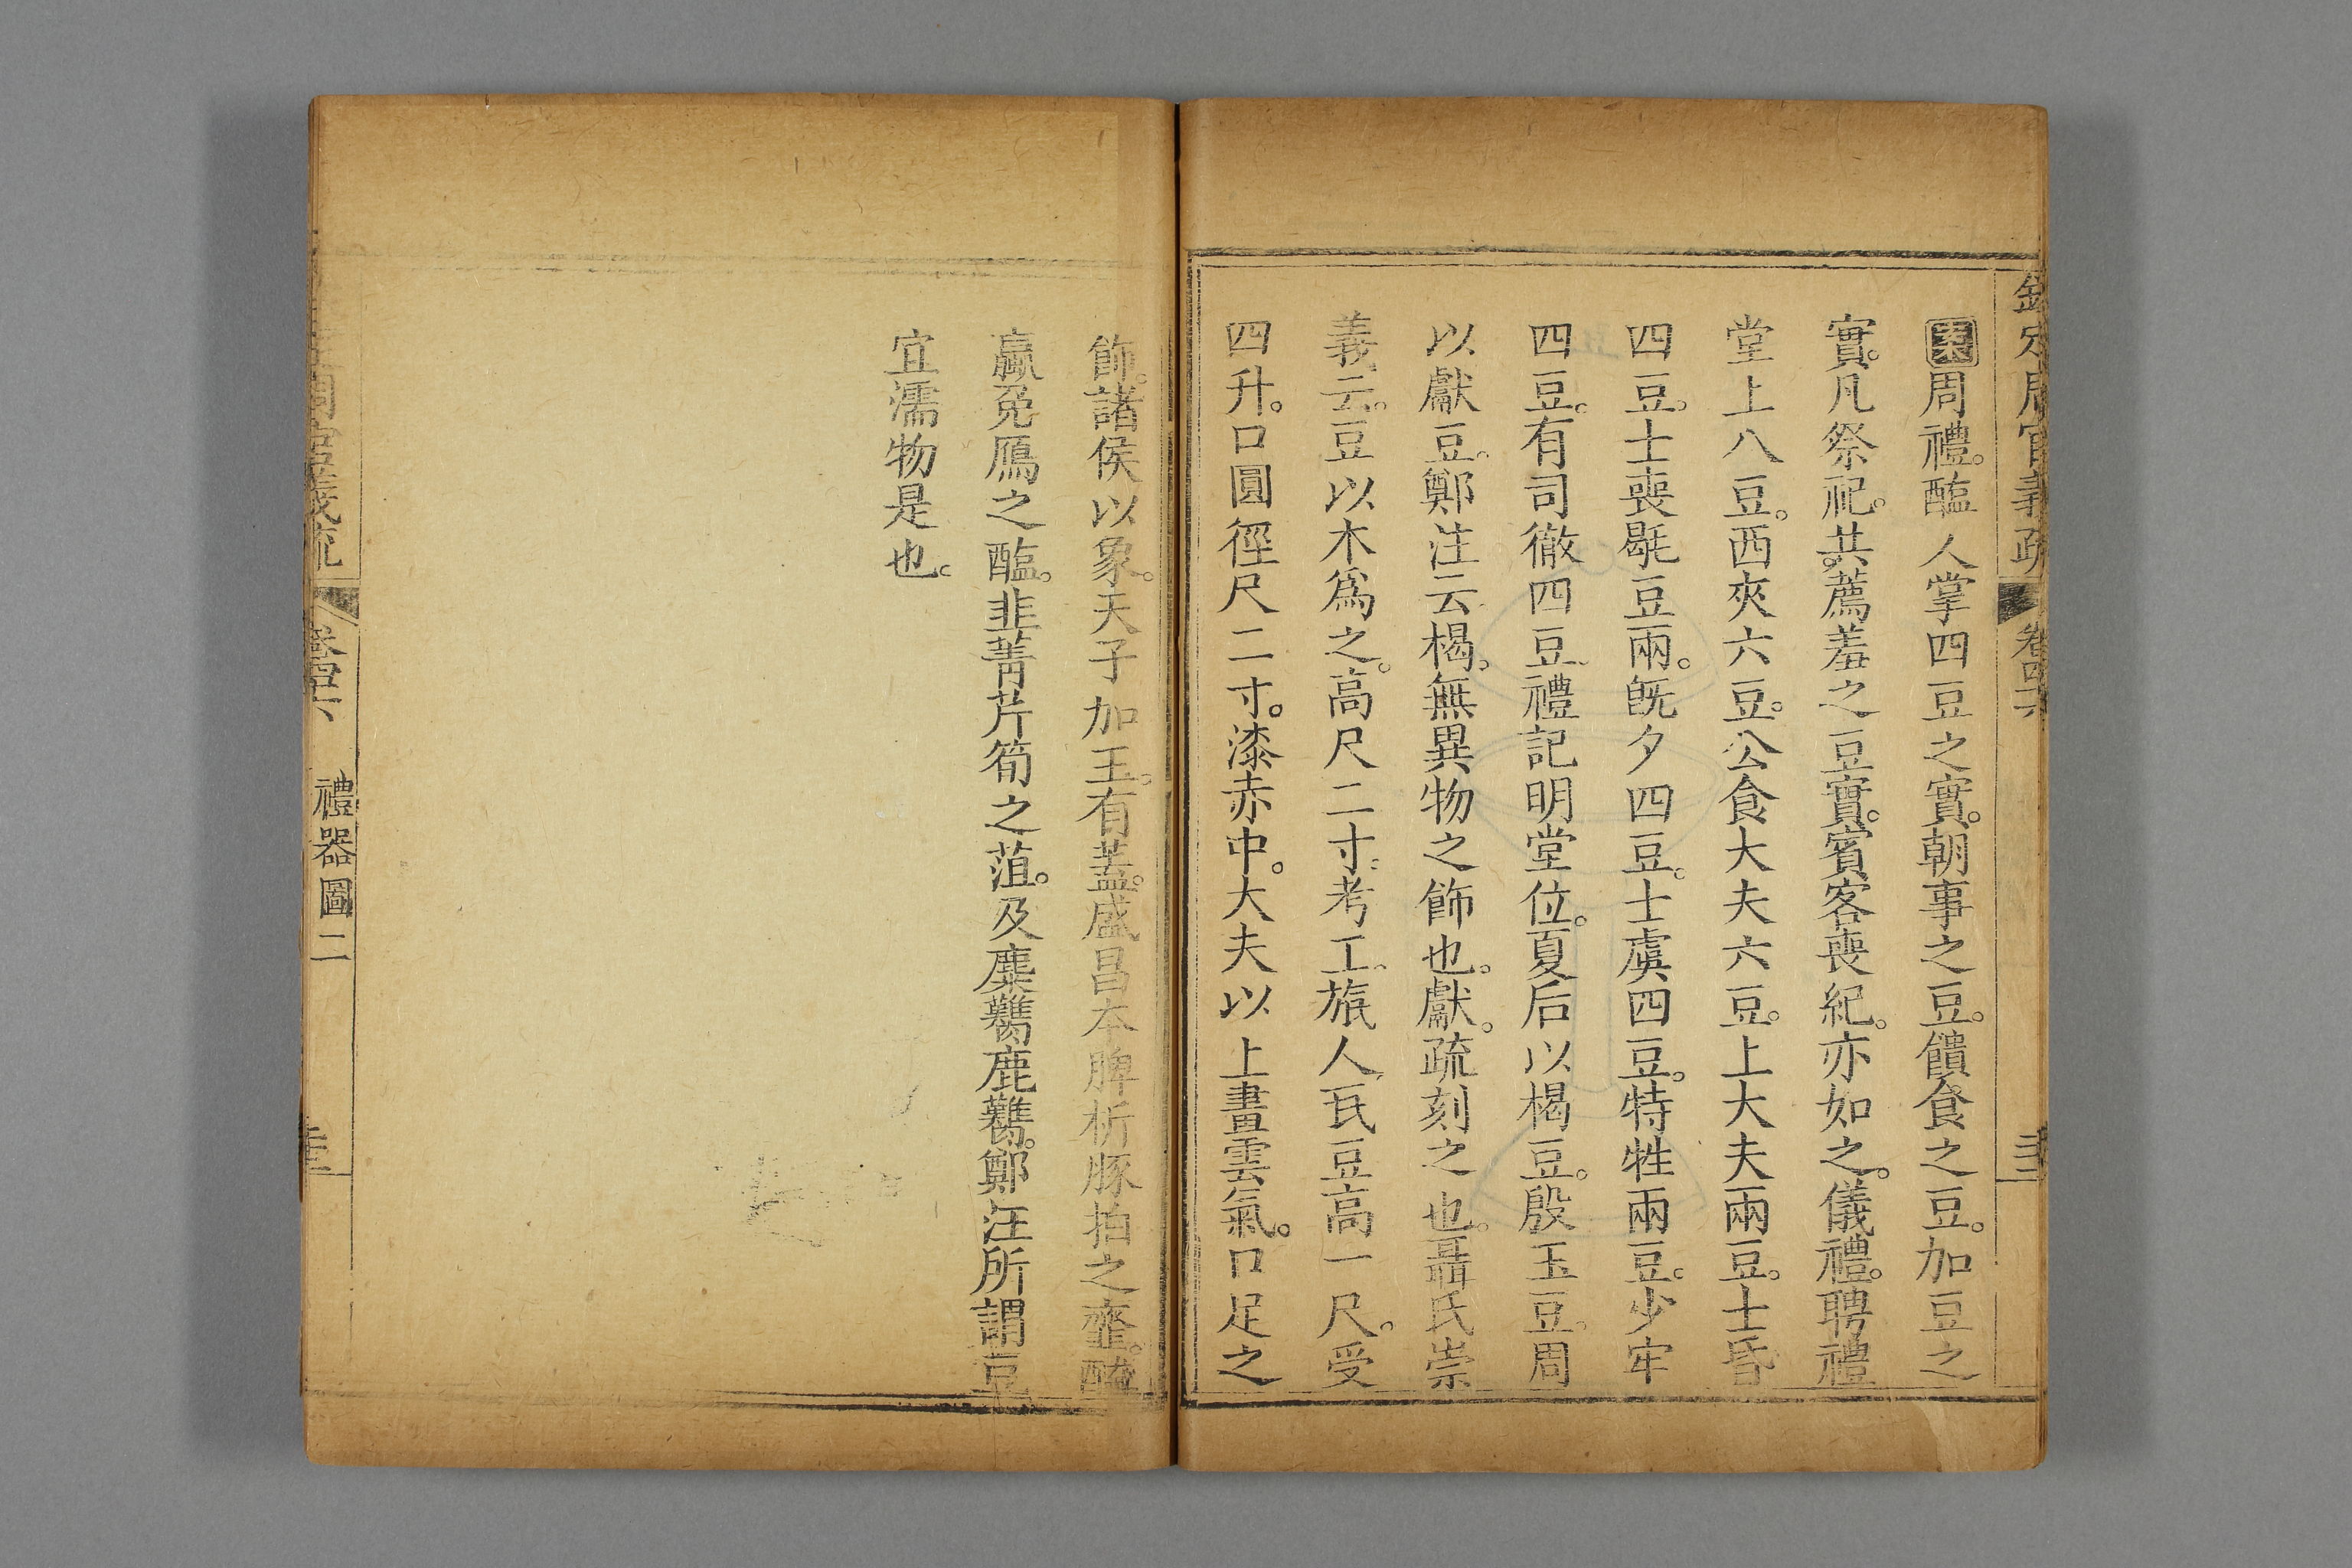 欽定周官義疏 卷四十六
案周禮。醢人掌四豆之實。朝事之豆。饋食之豆。加豆之
實。凡祭祀。共薦羞之豆實。賓客喪紀。亦如之。儀禮。聘禮
堂上八豆。西夾六豆。公食大夫六豆。上大夫兩豆。士昏
四豆。士喪毼豆兩。旣夕四豆。士虞四豆。特牲兩豆。少牢
四豆。有司徹四豆。禮記明堂位。夏后以楬豆。殷玉豆。周
以獻豆。鄭注云楬。無異物之飾也。獻。疏刻之也。聶氏崇
義云。豆以木爲之。高尺二寸。考工。旊人瓦豆高一尺。受
四升。口圓徑尺二寸。漆赤中。大夫以上畫雲氣。口足之
飾。諸侯以象。天子加玉。有葢。盛昌本脾析豚拍之齏。醓
蠃兔鴈之醢。韭菁芹筍之菹。及麋臡鹿臡。鄭注所謂豆
宜濡物是也。
周官義疏 卷四十六 禮器圖二